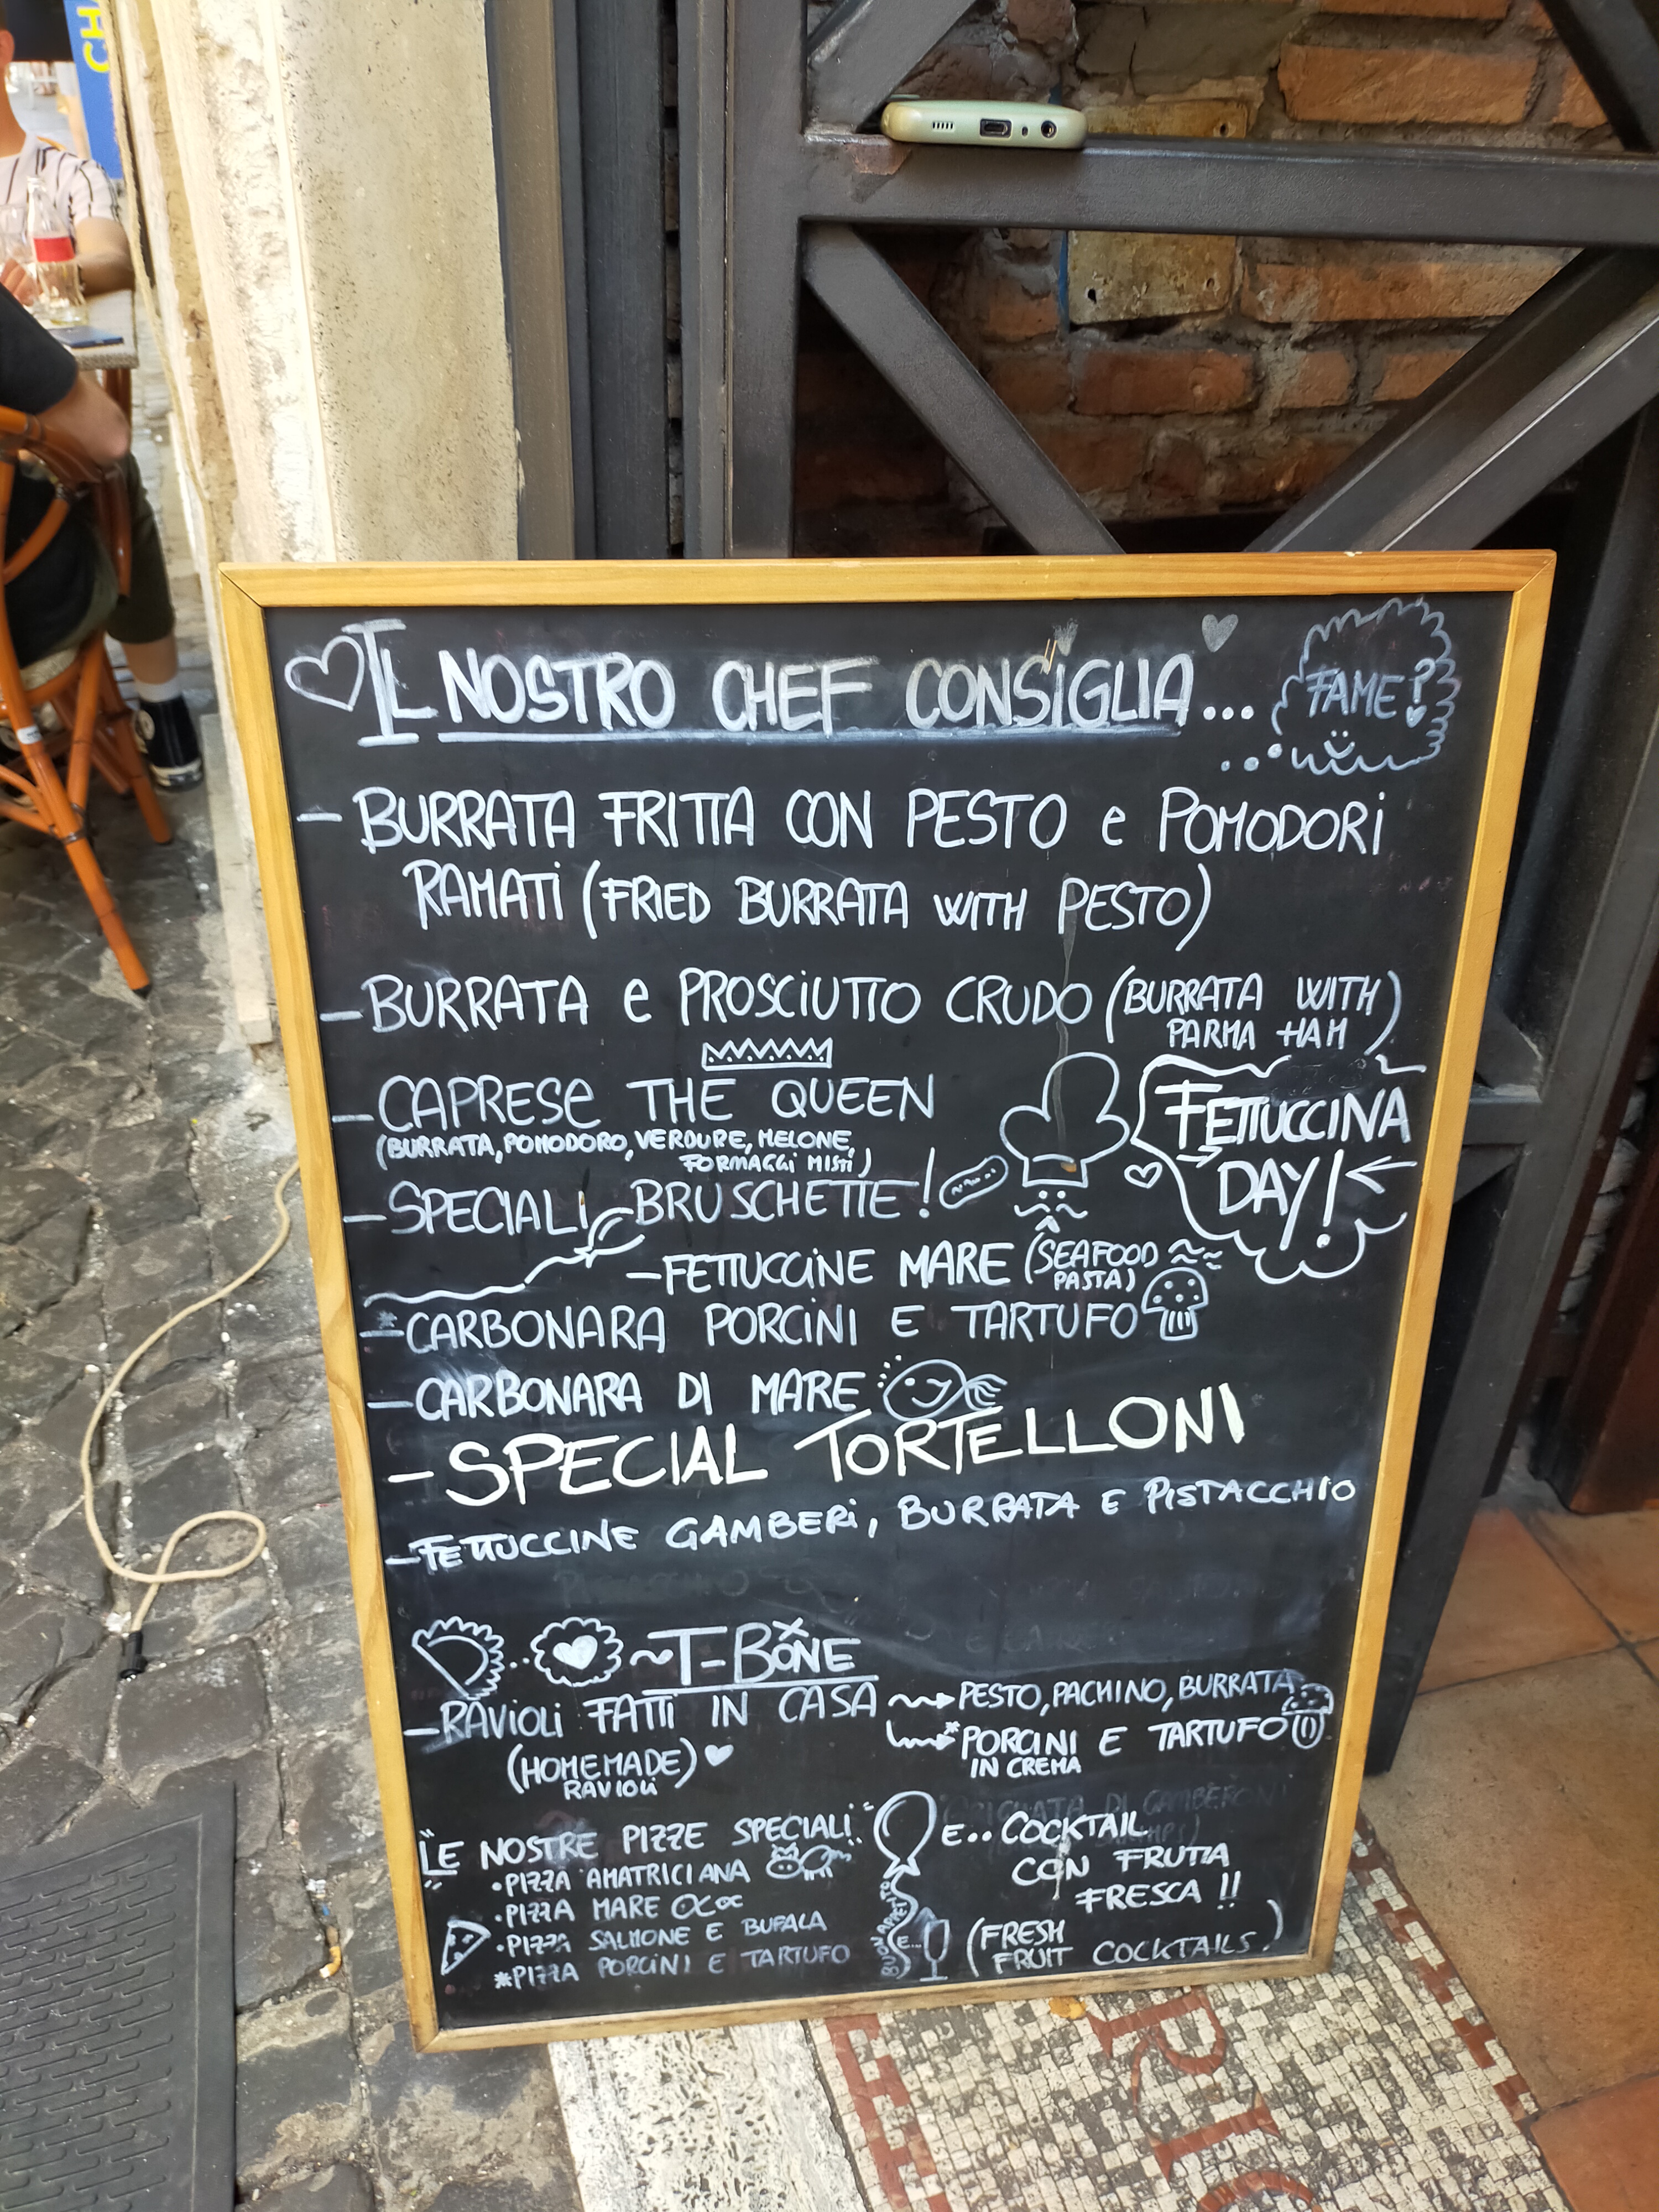 CH
IL NOSTRO CHEF CONSIGLIA...
FAME?
- BURRATA FRITTA CON PESTO e POMODORI
RAMATI (FRIED BURRATA WITH PESTO)
- BURRATA e PROSCIUTTO CRUDO (BURRATA WITH
PARMA HAM)
- CAPRESE THE QUEEN
(BURRATA, POMODORO, VERDURE, MELONE,
FORMAGGI MISTI)
FETTUCCINA
DAY!
- SPECIALI BRUSCHETTE!
- FETTUCCINE MARE (SEAFOOD
PASTA)
*- CARBONARA PORCINI E TARTUFO
- CARBONARA DI MARE
- SPECIAL TORTELLONI
- FETTUCCINE GAMBERI, BURRATA E PISTACCHIO
~T-BONE
- RAVIOLI FATTI IN CASA
(HOMEMADE)
RAVIOLI
PESTO, PACHINO, BURRATA
*PORCINI E TARTUFO
IN CREMA
"LE NOSTRE PIZZE SPECIALI"
• PIZZA AMATRICIANA
• PIZZA MARE
• PIZZA SALMONE E BUFALA
*PIZZA PORCINI E TARTUFO
BUON APPETITO
E...
E.. COCKTAIL
CON FRUTTA
FRESCA !!
(FRESH
FRUIT COCKTAILS)
RIC